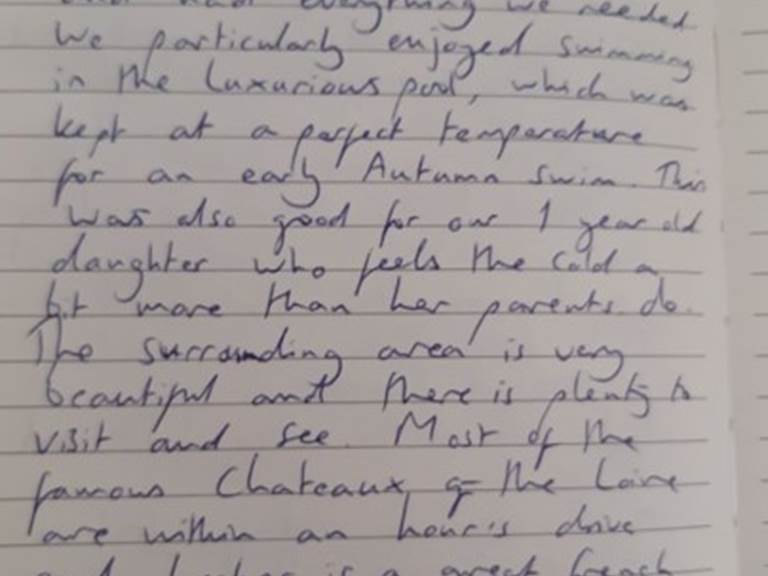 and had everything we needed
We particularly enjoyed swimming
in the luxurious pool, which was
kept at a perfect temperature
for an early Autumn swim. This
was also good for our 1 year old
daughter who feels the cold a
bit more than her parents do.
The surrounding area is very
beautiful and there is plenty to
visit and see. Most of the
famous Chateaux of the Loire
are within an hour's drive
and is a great French